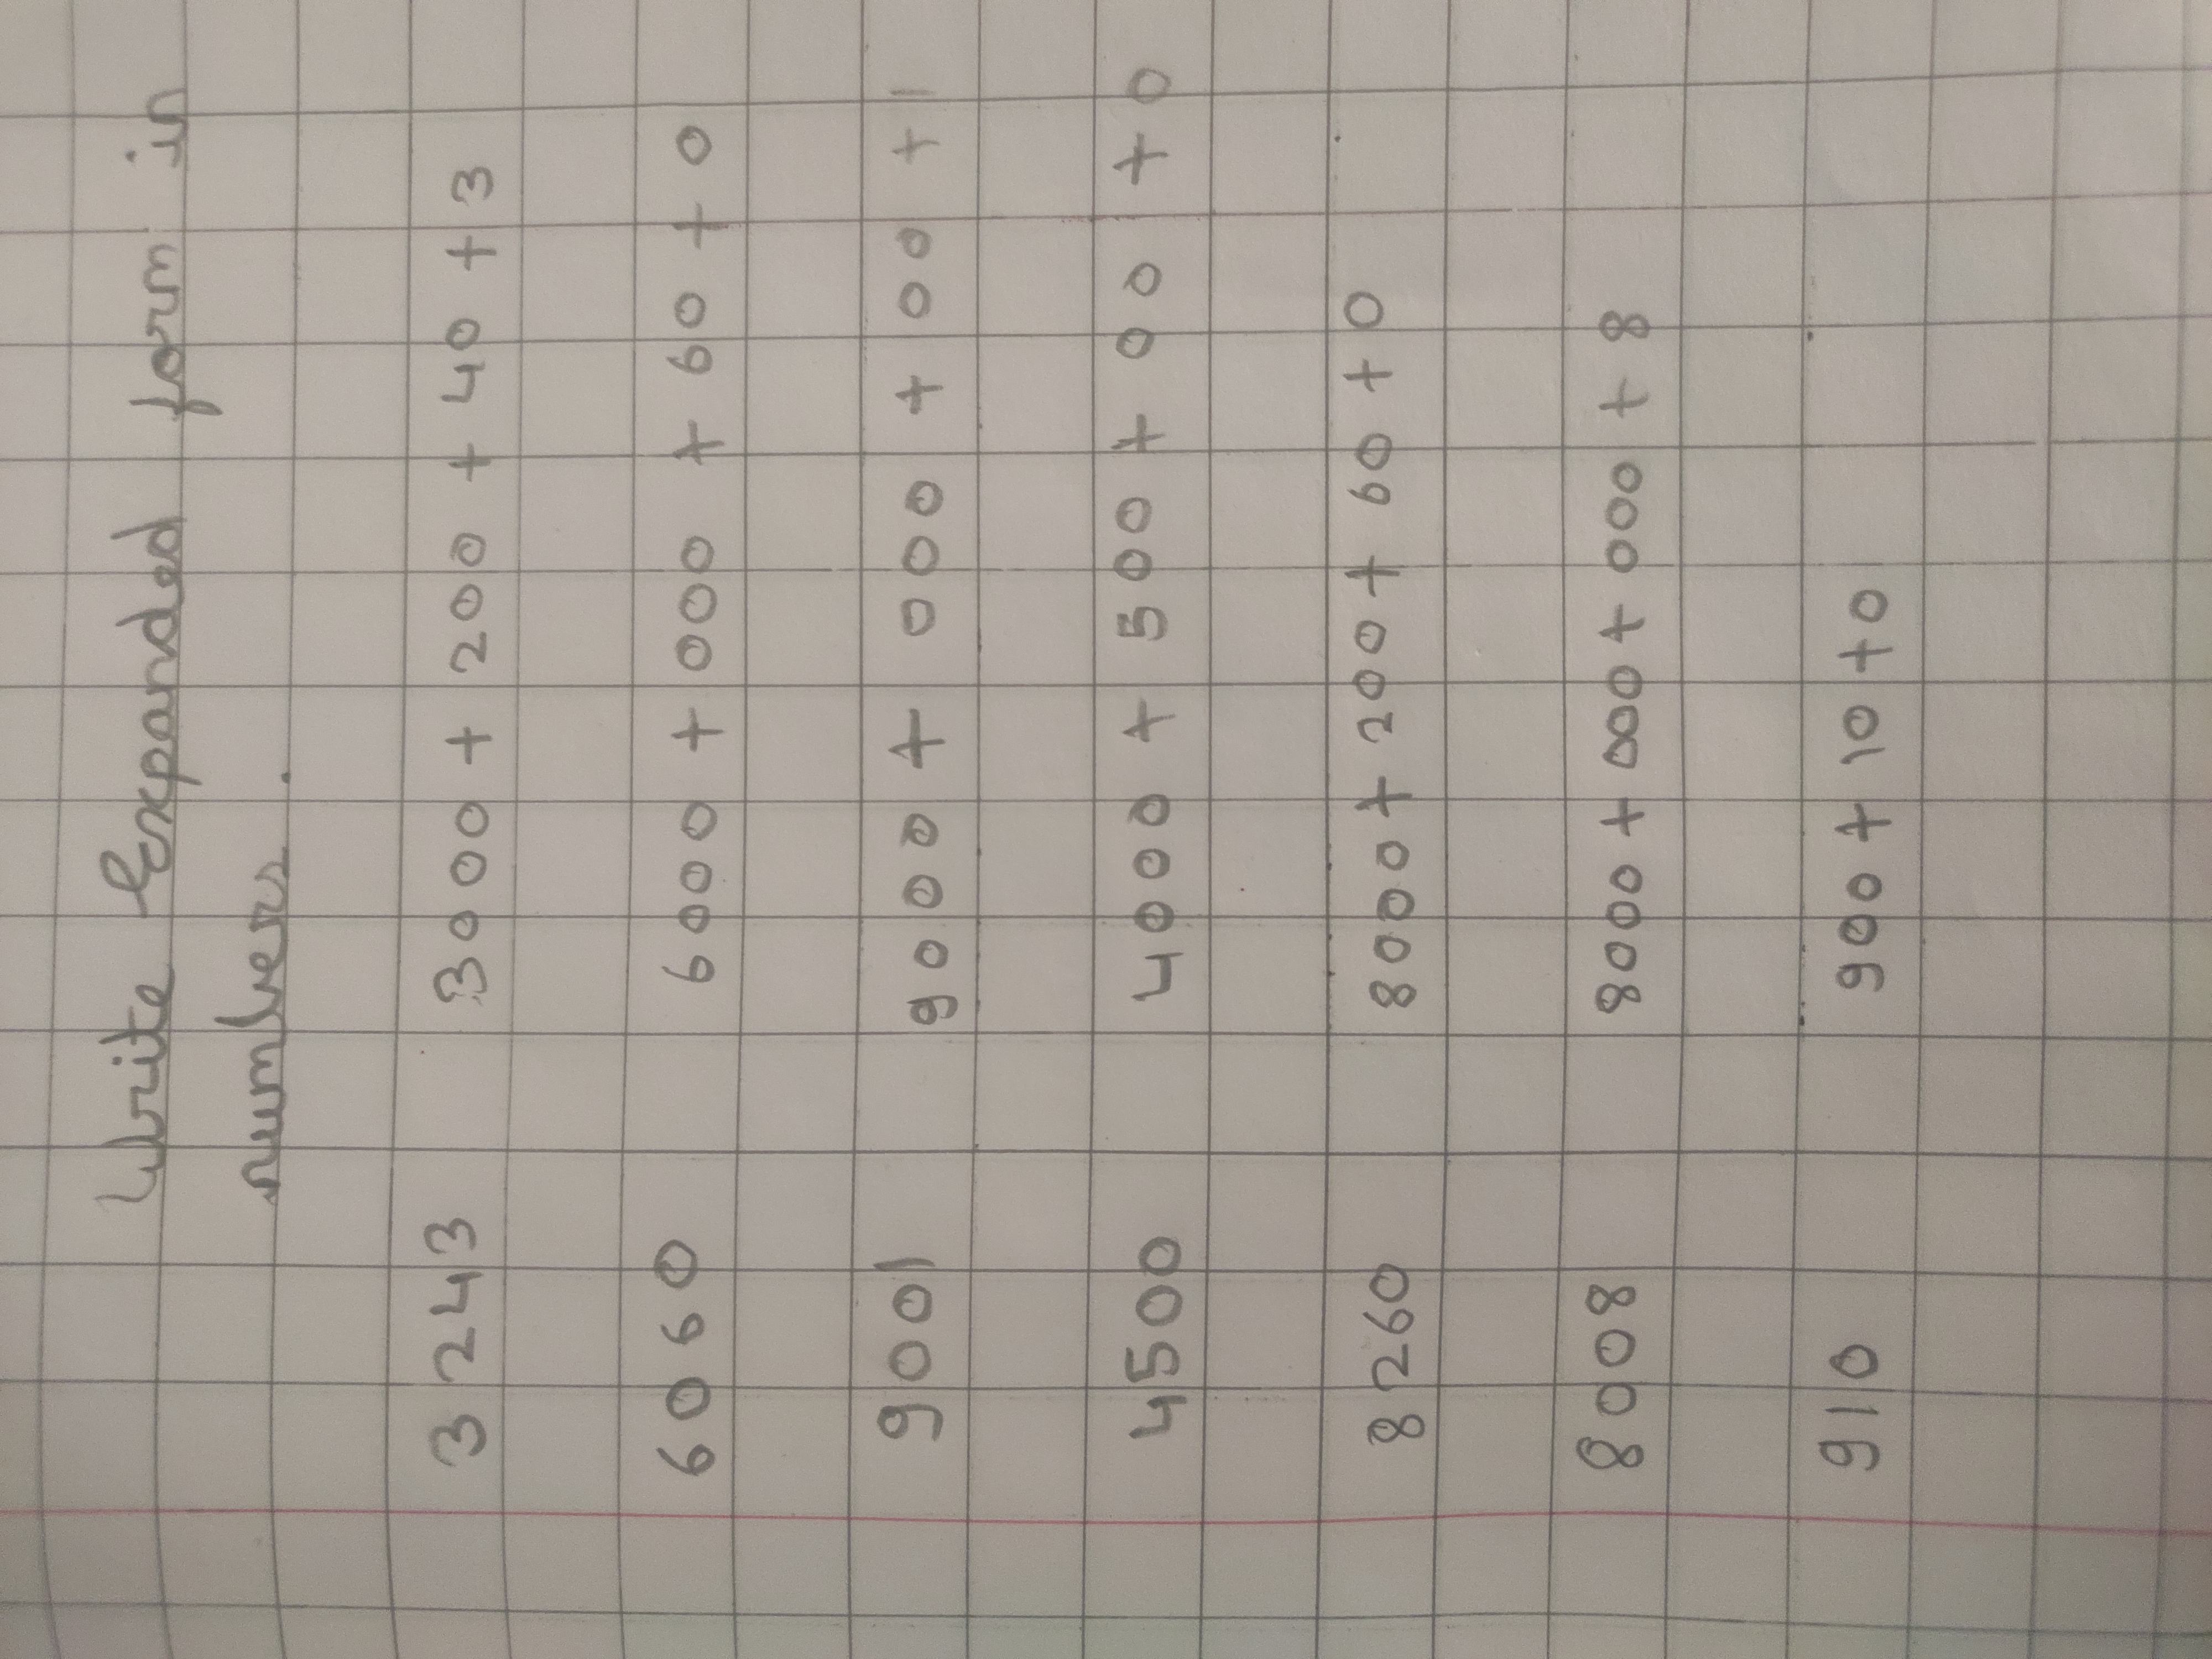 Write Expanded form in
numbers.
3243 3000 + 200 + 40 + 3
6060 6000 + 000 + 60 + 0
9001 9000 + 000 + 00 + 1
4500 4000 + 500 + 00 + 0
8260 8000 + 200 + 60 + 0
8008 8000 + 000 + 000 + 8
910 900 + 10 + 0